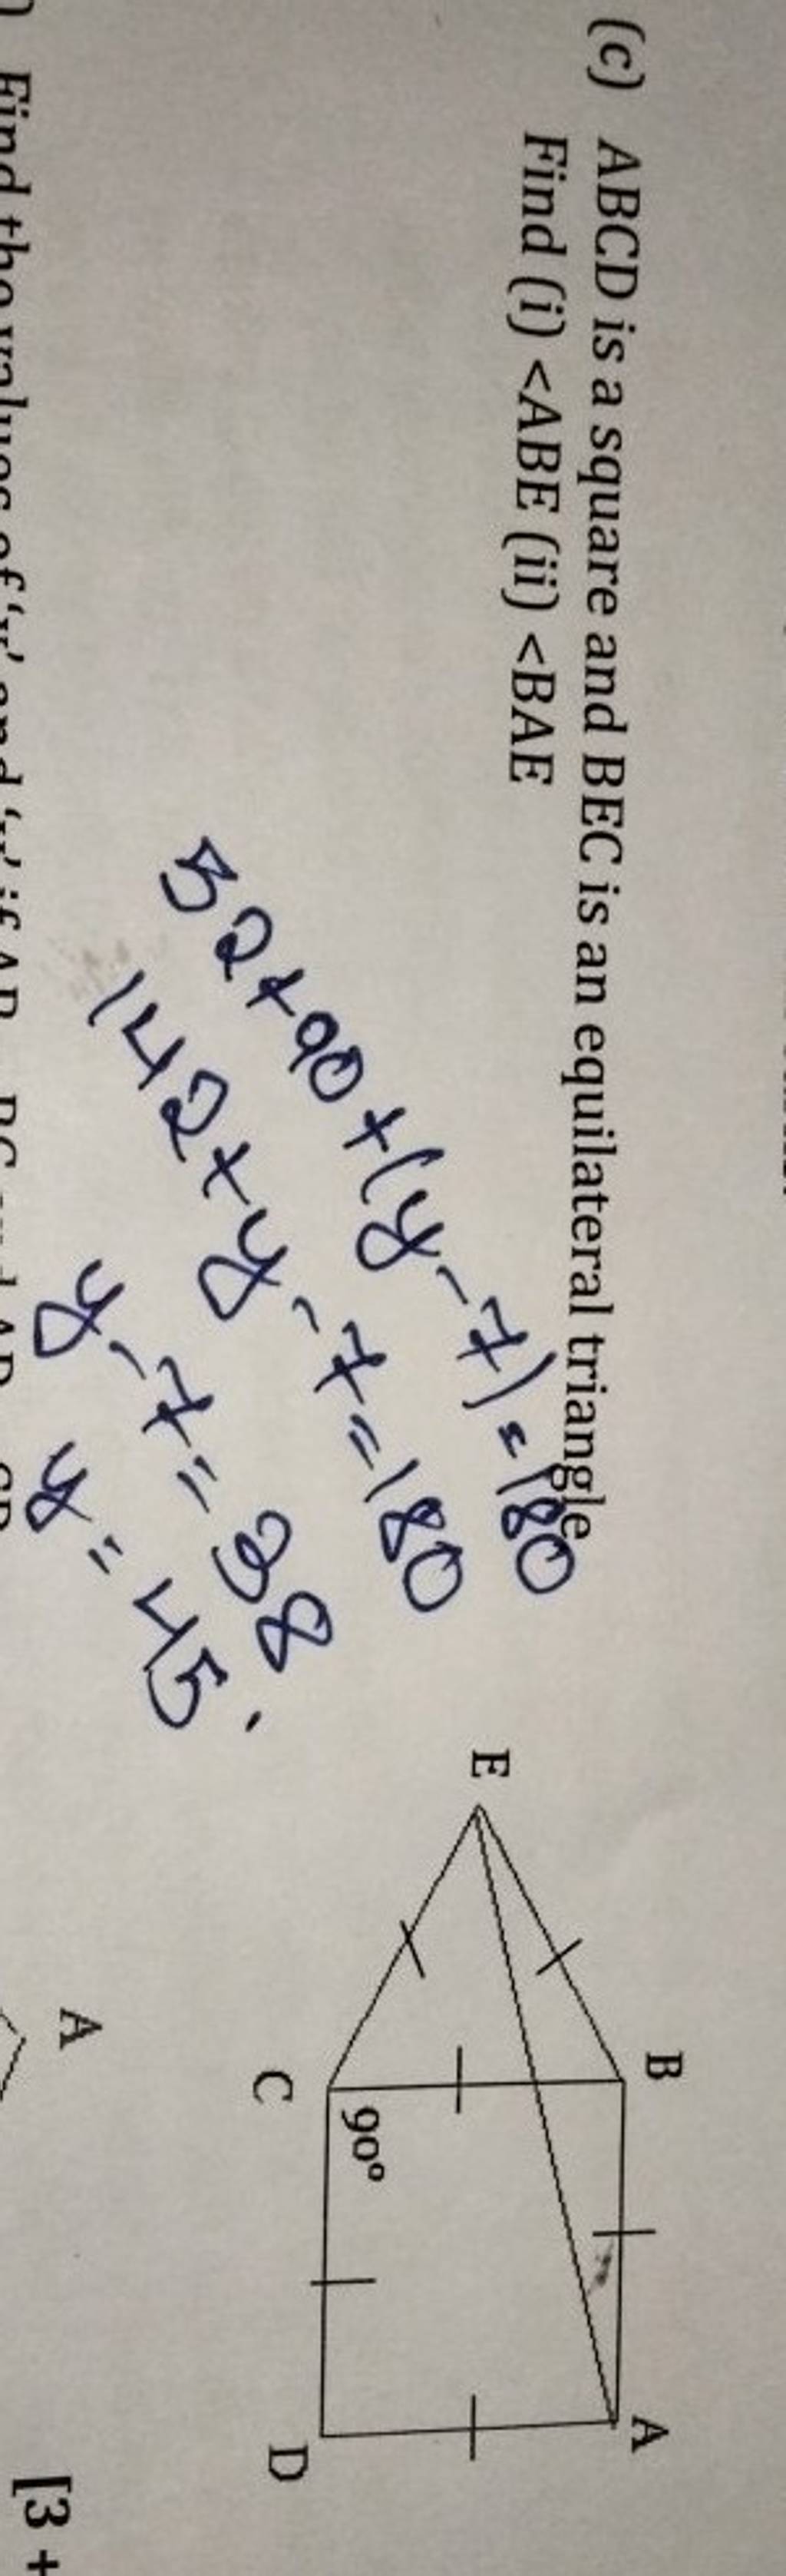 (c) ABCD is a square and BEC is an equilateral triangle
Find (i) <ABE (ii) <BAE
52+90+(y-7)=180
142+y-7=180
y-7=38
y=45.
E
B
A
C
90°
D
A
[3 +
Find the values of 'x' and 'y' if AB